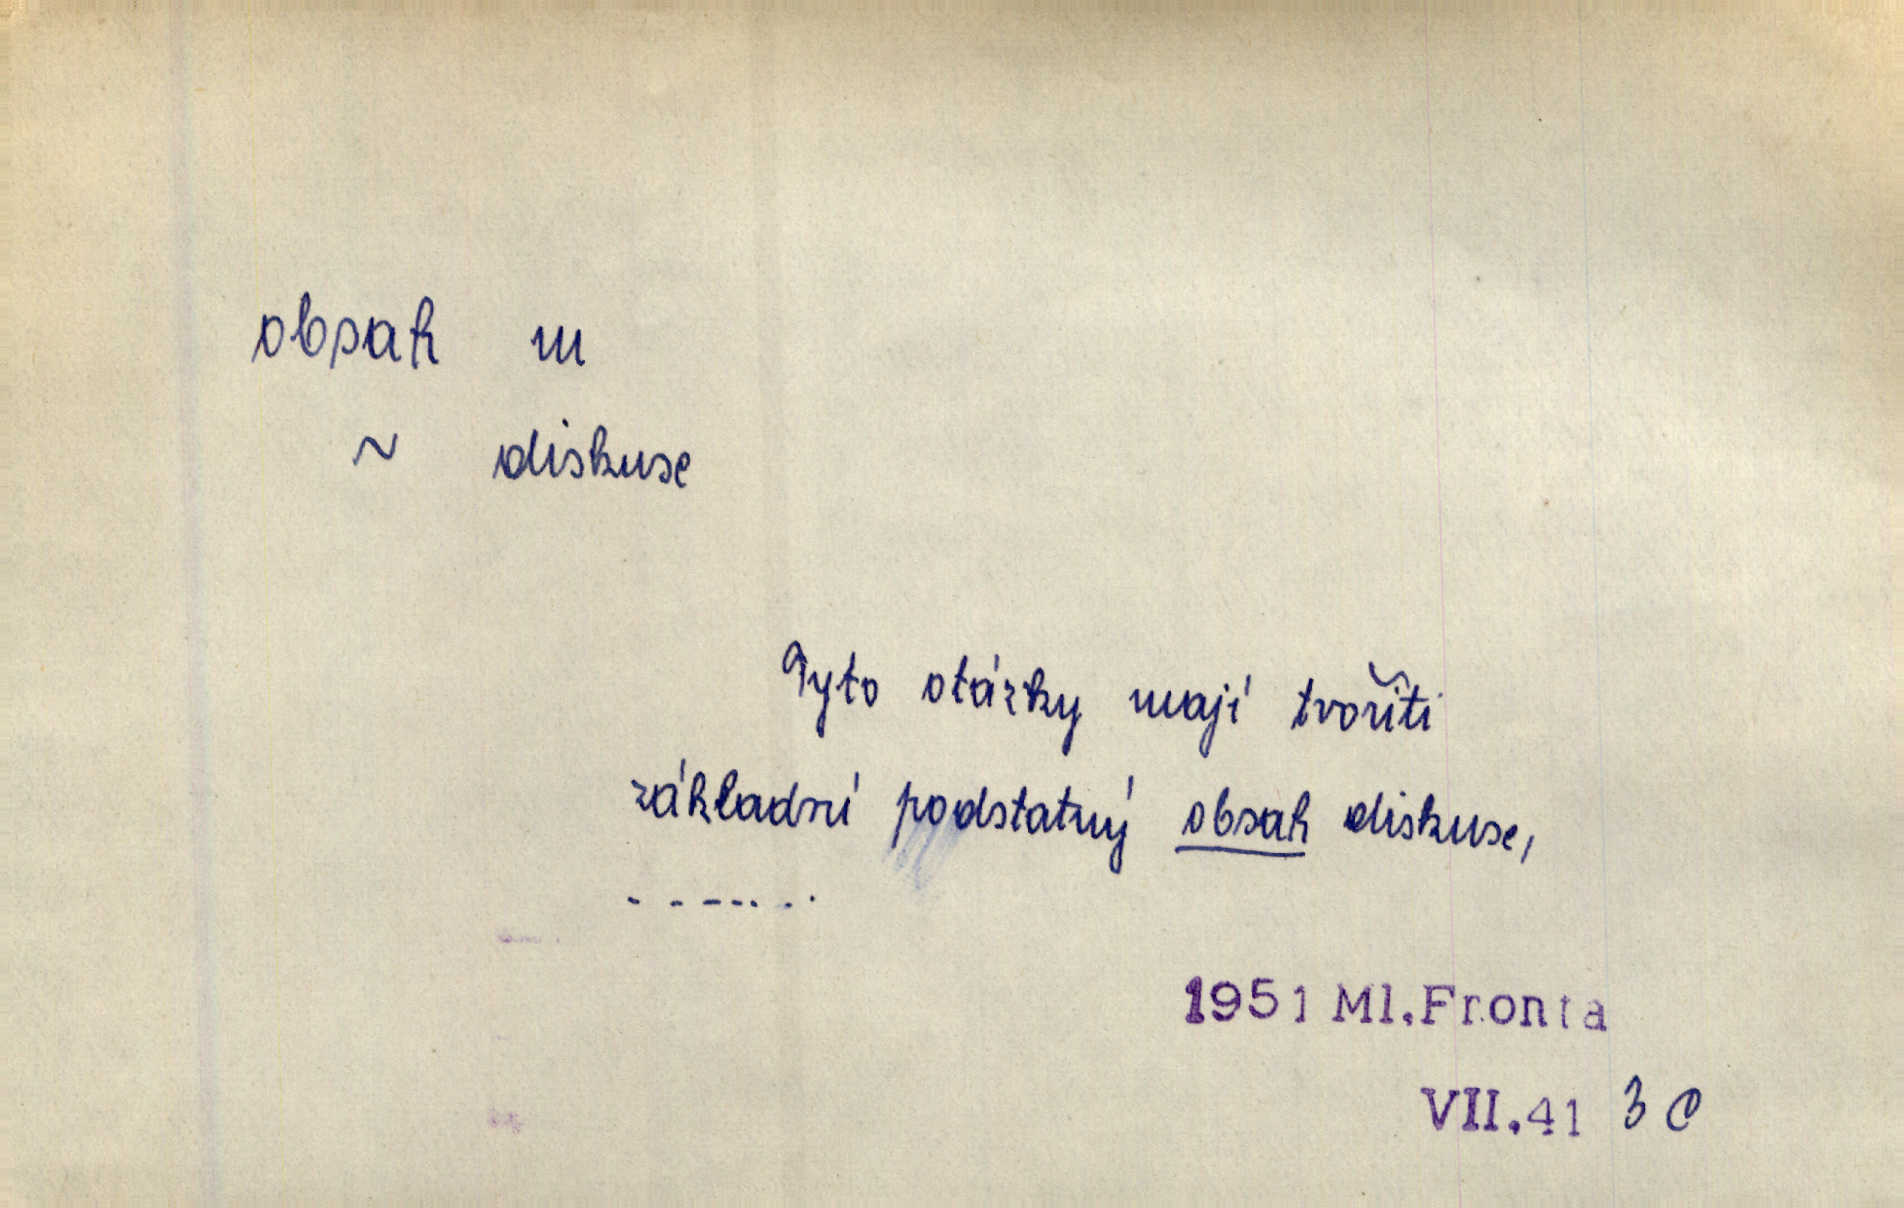 obsah m
~ diskuse
Tyto otázky mají tvořiti
základní podstatný obsah diskuse,
- - - - - - -
1951 Ml.Fronta
VII.41 3